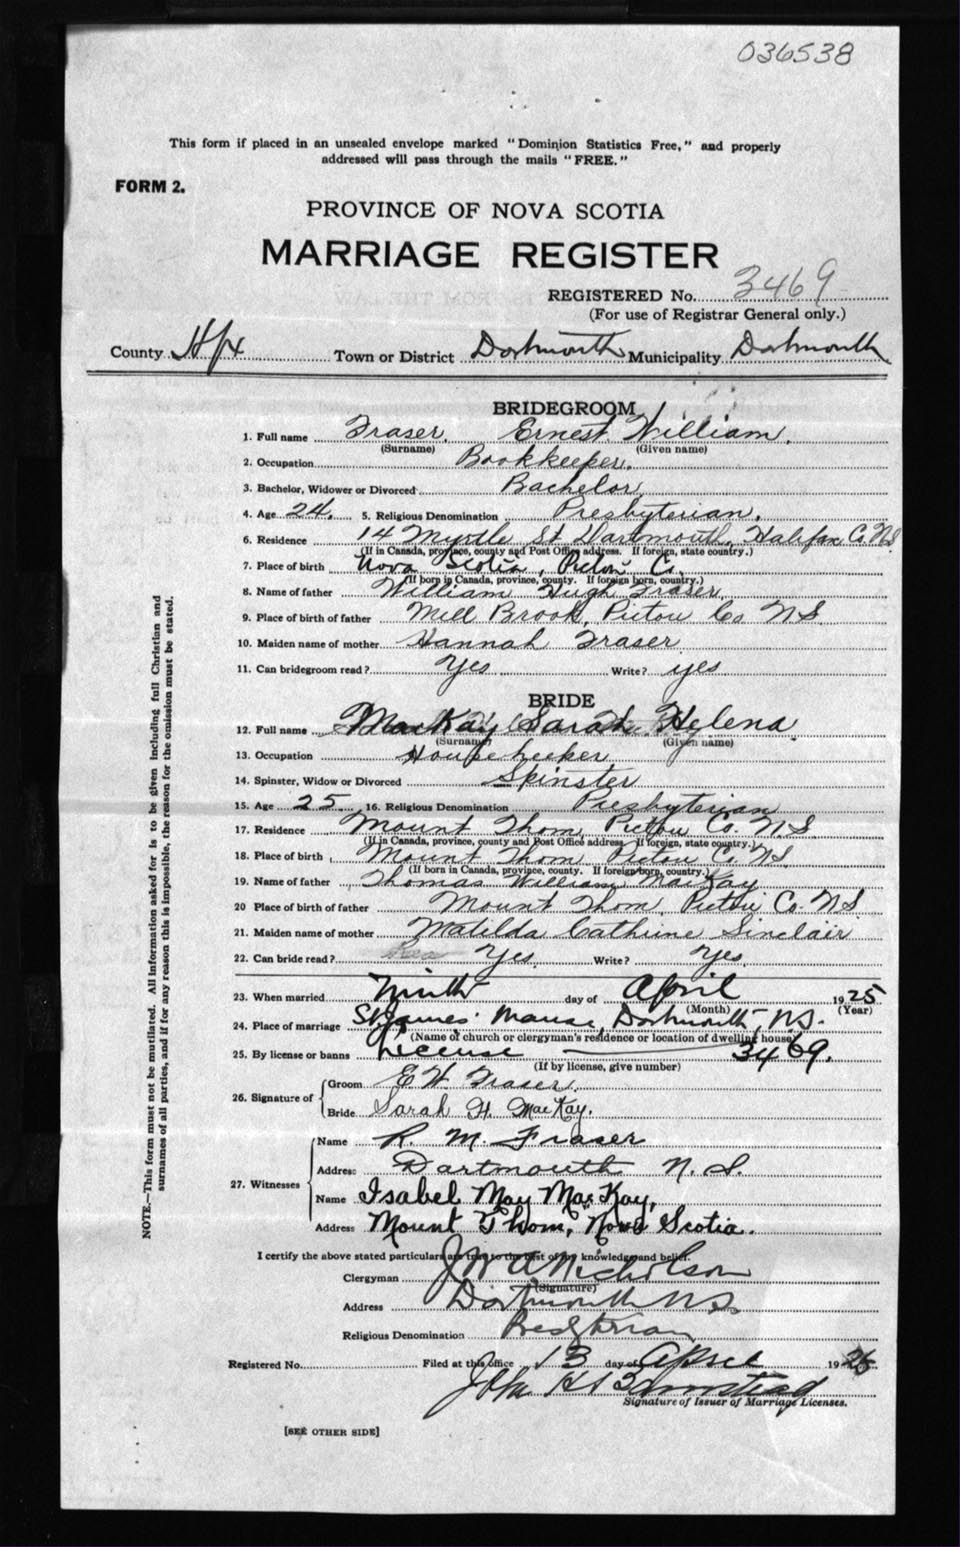 036538
This form if placed in an unsealed envelope marked "Dominion Statistics Free," and properly
addressed will pass through the mails "FREE."
FORM 2.
PROVINCE OF NOVA SCOTIA
MARRIAGE REGISTER
REGISTERED No. 3469
(For use of Registrar General only.)
County Hfx Town or District Dartmouth Municipality Dartmouth
BRIDEGROOM
1. Full name Fraser, Ernest William.
(Surname) (Given name)
2. Occupation Bookkeeper.
3. Bachelor, Widower or Divorced Bachelor
4. Age 24. 5. Religious Denomination Presbyterian.
6. Residence 14 Myrtle St Dartmouth, Halifax Co. N.S.
(If in Canada, province, county and Post Office address. If foreign, state country.)
7. Place of birth Nova Scotia, Pictou Co.
(If born in Canada, province, county. If foreign born, country.)
8. Name of father William Hugh Fraser
9. Place of birth of father Mill Brook, Pictou Co N.S.
10. Maiden name of mother Hannah Fraser
11. Can bridegroom read? Yes Write? yes
BRIDE
12. Full name MacKay Sarah Helena
(Surname) (Given name)
13. Occupation Housekeeper
14. Spinster, Widow or Divorced Spinster
15. Age 25 16. Religious Denomination Presbyterian
17. Residence Mount Thom, Pictou Co. N.S.
(If in Canada, province, county and Post Office address. If foreign, state country.)
18. Place of birth Mount Thom Pictou Co. N.S
(If born in Canada, province, county. If foreign born, country.)
19. Name of father Thomas William MacKay
20 Place of birth of father Mount Thom, Pictou Co. N.S.
21. Maiden name of mother Matilda Cathrine Sinclair
22. Can bride read? Yes. Write? Yes.
23. When married Ninth day of April 1925
(Month) (Year)
24. Place of marriage St James' Manse, Dartmouth, N.S.
(Name of church or clergyman's residence or location of dwelling house)
25. By license or banns License 3469.
(If by license, give number)
26. Signature of Groom E W Fraser.
Bride Sarah H. MacKay.
27. Witnesses Name R. M. Fraser
Address Dartmouth N. S.
Name Isabel May MacKay,
Address Mount Thom, Nova Scotia.
I certify the above stated particulars are true to the best of my knowledge and belief.
Clergyman J W A Nicholson
(Signature)
Address Dartmouth N.S.
Religious Denomination Presbyterian
Registered No. Filed at this office 13 day of April 1925
John H
Signature of Issuer of Marriage Licenses.
[SEE OTHER SIDE]
NOTE.—This form must not be mutilated. All information asked for is to be given including full Christian and
surnames of all parties, and if for any reason this is impossible, the reason for the omission must be stated.